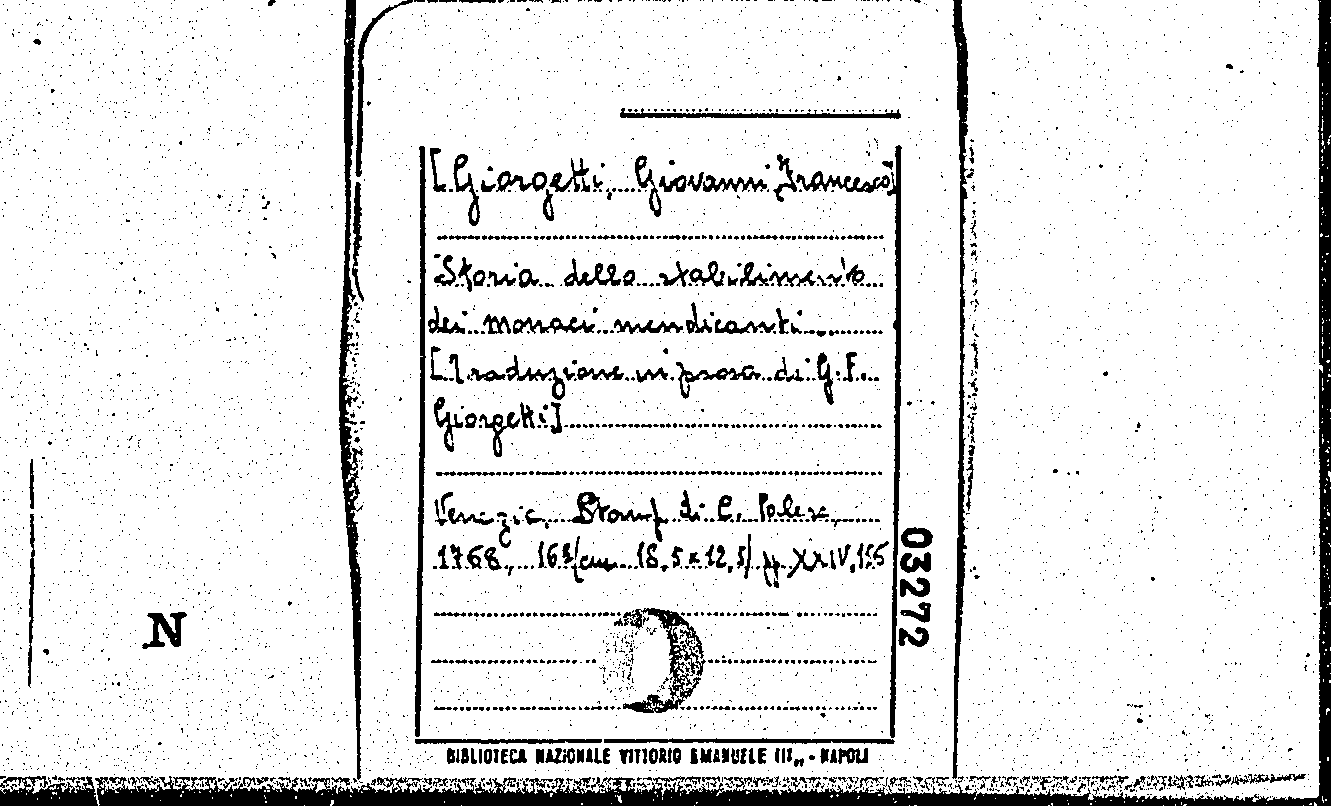 [Giorgetti, Giovanni Francesco]
Storia dello stabilimento
dei monaci mendicanti...
[Traduzione in prosa di G.F.
Giorgetti]
Venezia, Stamp. di C. Palese,
1768, 16º/cm. 18,5x12,5/ pp. XXIV,
03272
N
BIBLIOTECA NAZIONALE VITTORIO EMANUELE III„ - NAPOLI